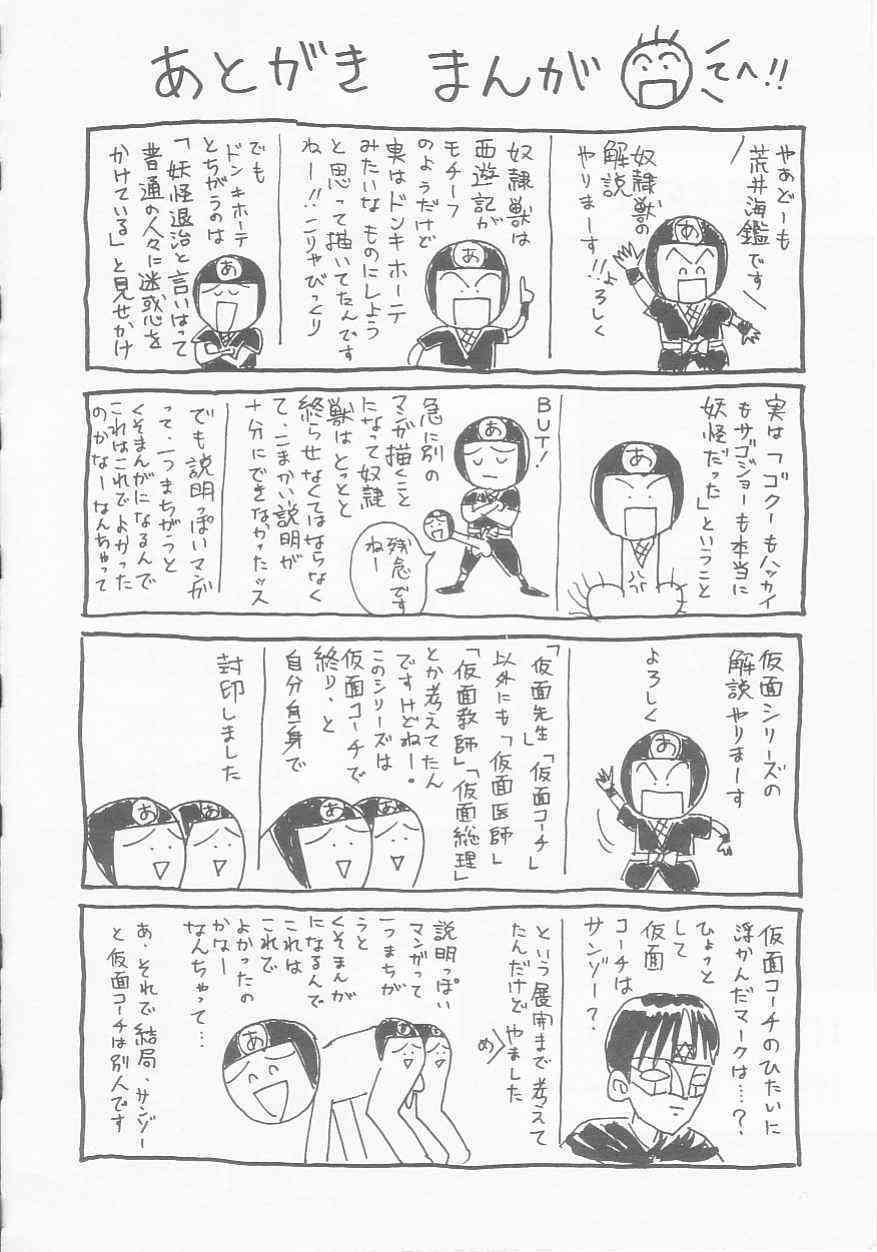 あとがき まんが
てへ!!
やあどーも
荒井海鑑です
奴隷獣の
解説
やりまーす!!
よろしく
あ
奴隷獣は
西遊記が
モチーフ
のようだけど
実はドンキホーテ
みたいなものにしよう
と思って描いてたんです
ねー!!こりゃびっくり
あ
でも
ドンキホーテ
とちがうのは
「妖怪退治と言いはって
普通の人々に迷惑を
かけている」と見せかけ
あ
実は「ゴクーもハッカイ
もサゴジョーも本当に
妖怪だった」ということ
あ
BUT!
急に別の
マンガ描くこと
になって奴隷
獣はとっとと
終らせなくてはならなく
て、こまかい説明が
十分にできなかったッス
あ
残念です
ねー
でも説明っぽいマンガ
って、一つまちがうと
くそまんがになるんで
これはこれでよかった
のかなーなんちゃって
仮面シリーズの
解説やりまーす
よろしく
あ
「仮面先生」「仮面コーチ」
以外にも「仮面医師」
「仮面教師」「仮面総理」
とか考えてたん
ですけどねー。
このシリーズは
仮面コーチで
終り、と
自分自身で
あ
あ
封印しました
あ
あ
仮面コーチのひたいに
浮かんだマークは…?
ひょっと
して
仮面
コーチは
サンゾー?
という展開まで考えて
たんだけどやました
め
説明っぽい
マンガって
一つまちが
うと
くそまんが
になるんで
これは
これで
よかったの
かなー
なんちゃって…
あ
あ
あ
あ、それで結局、サンゾー
と仮面コーチは別人です